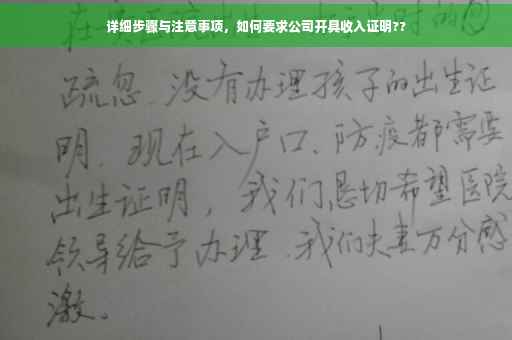 详细步骤与注意事项，如何要求公司开具收入证明??
疏忽、没有办理孩子的出生证
明、现在入户口、防疫都需要
出生证明，我们恳切希望医院
领导给予办理、我们夫妻万分感
激。